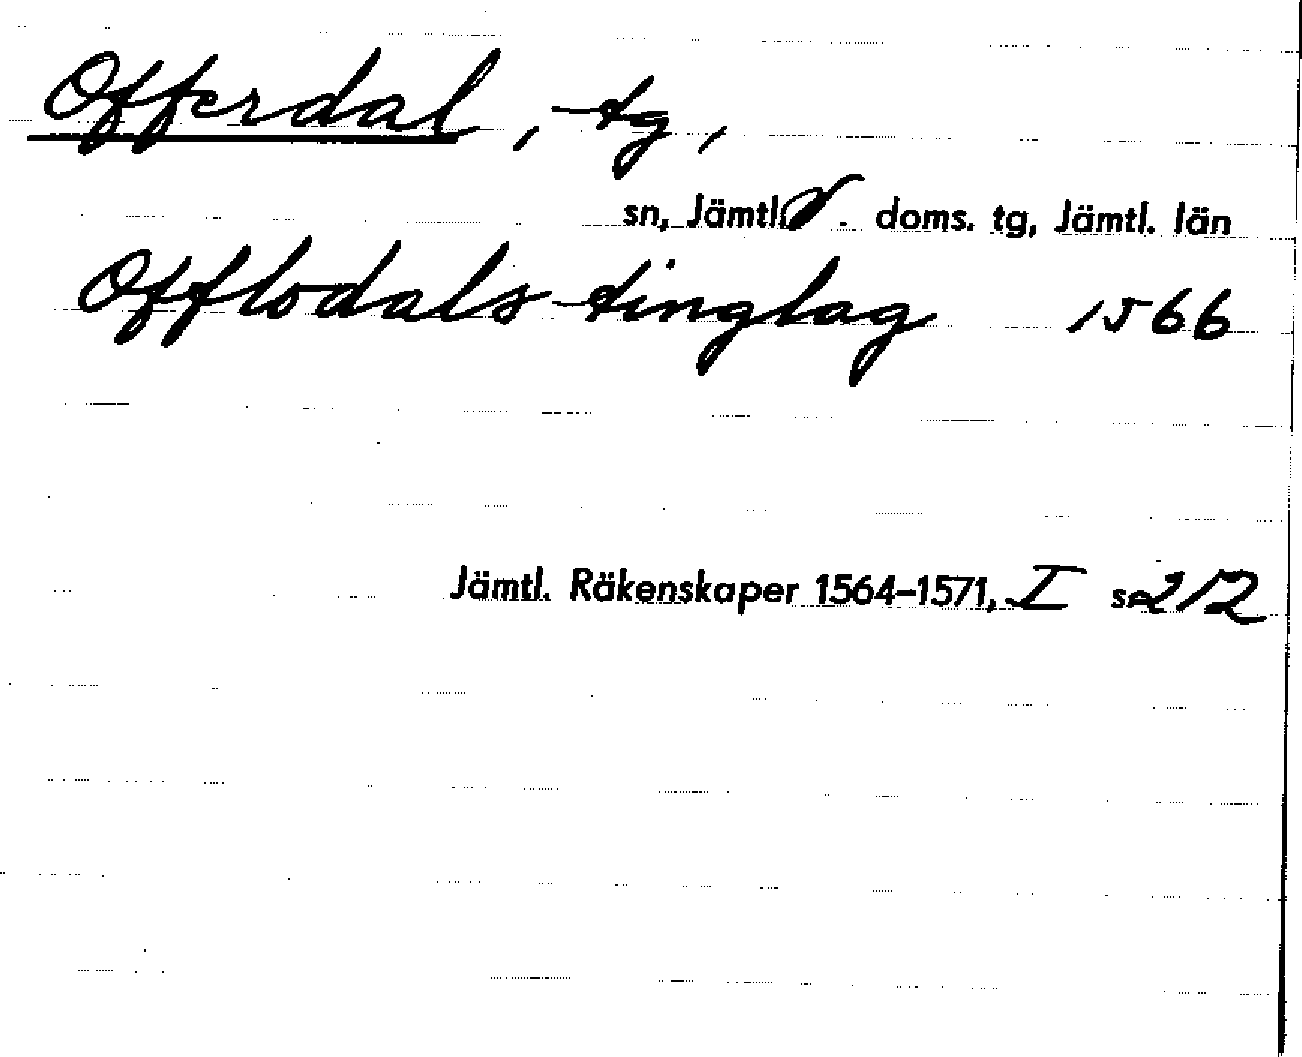 Offerdal, tg,
sn, Jämtl. V. doms. tg, Jämtl. län
Offlodals tinglag 1566
Jämtl. Räkenskaper 1564–1571, I s. 212